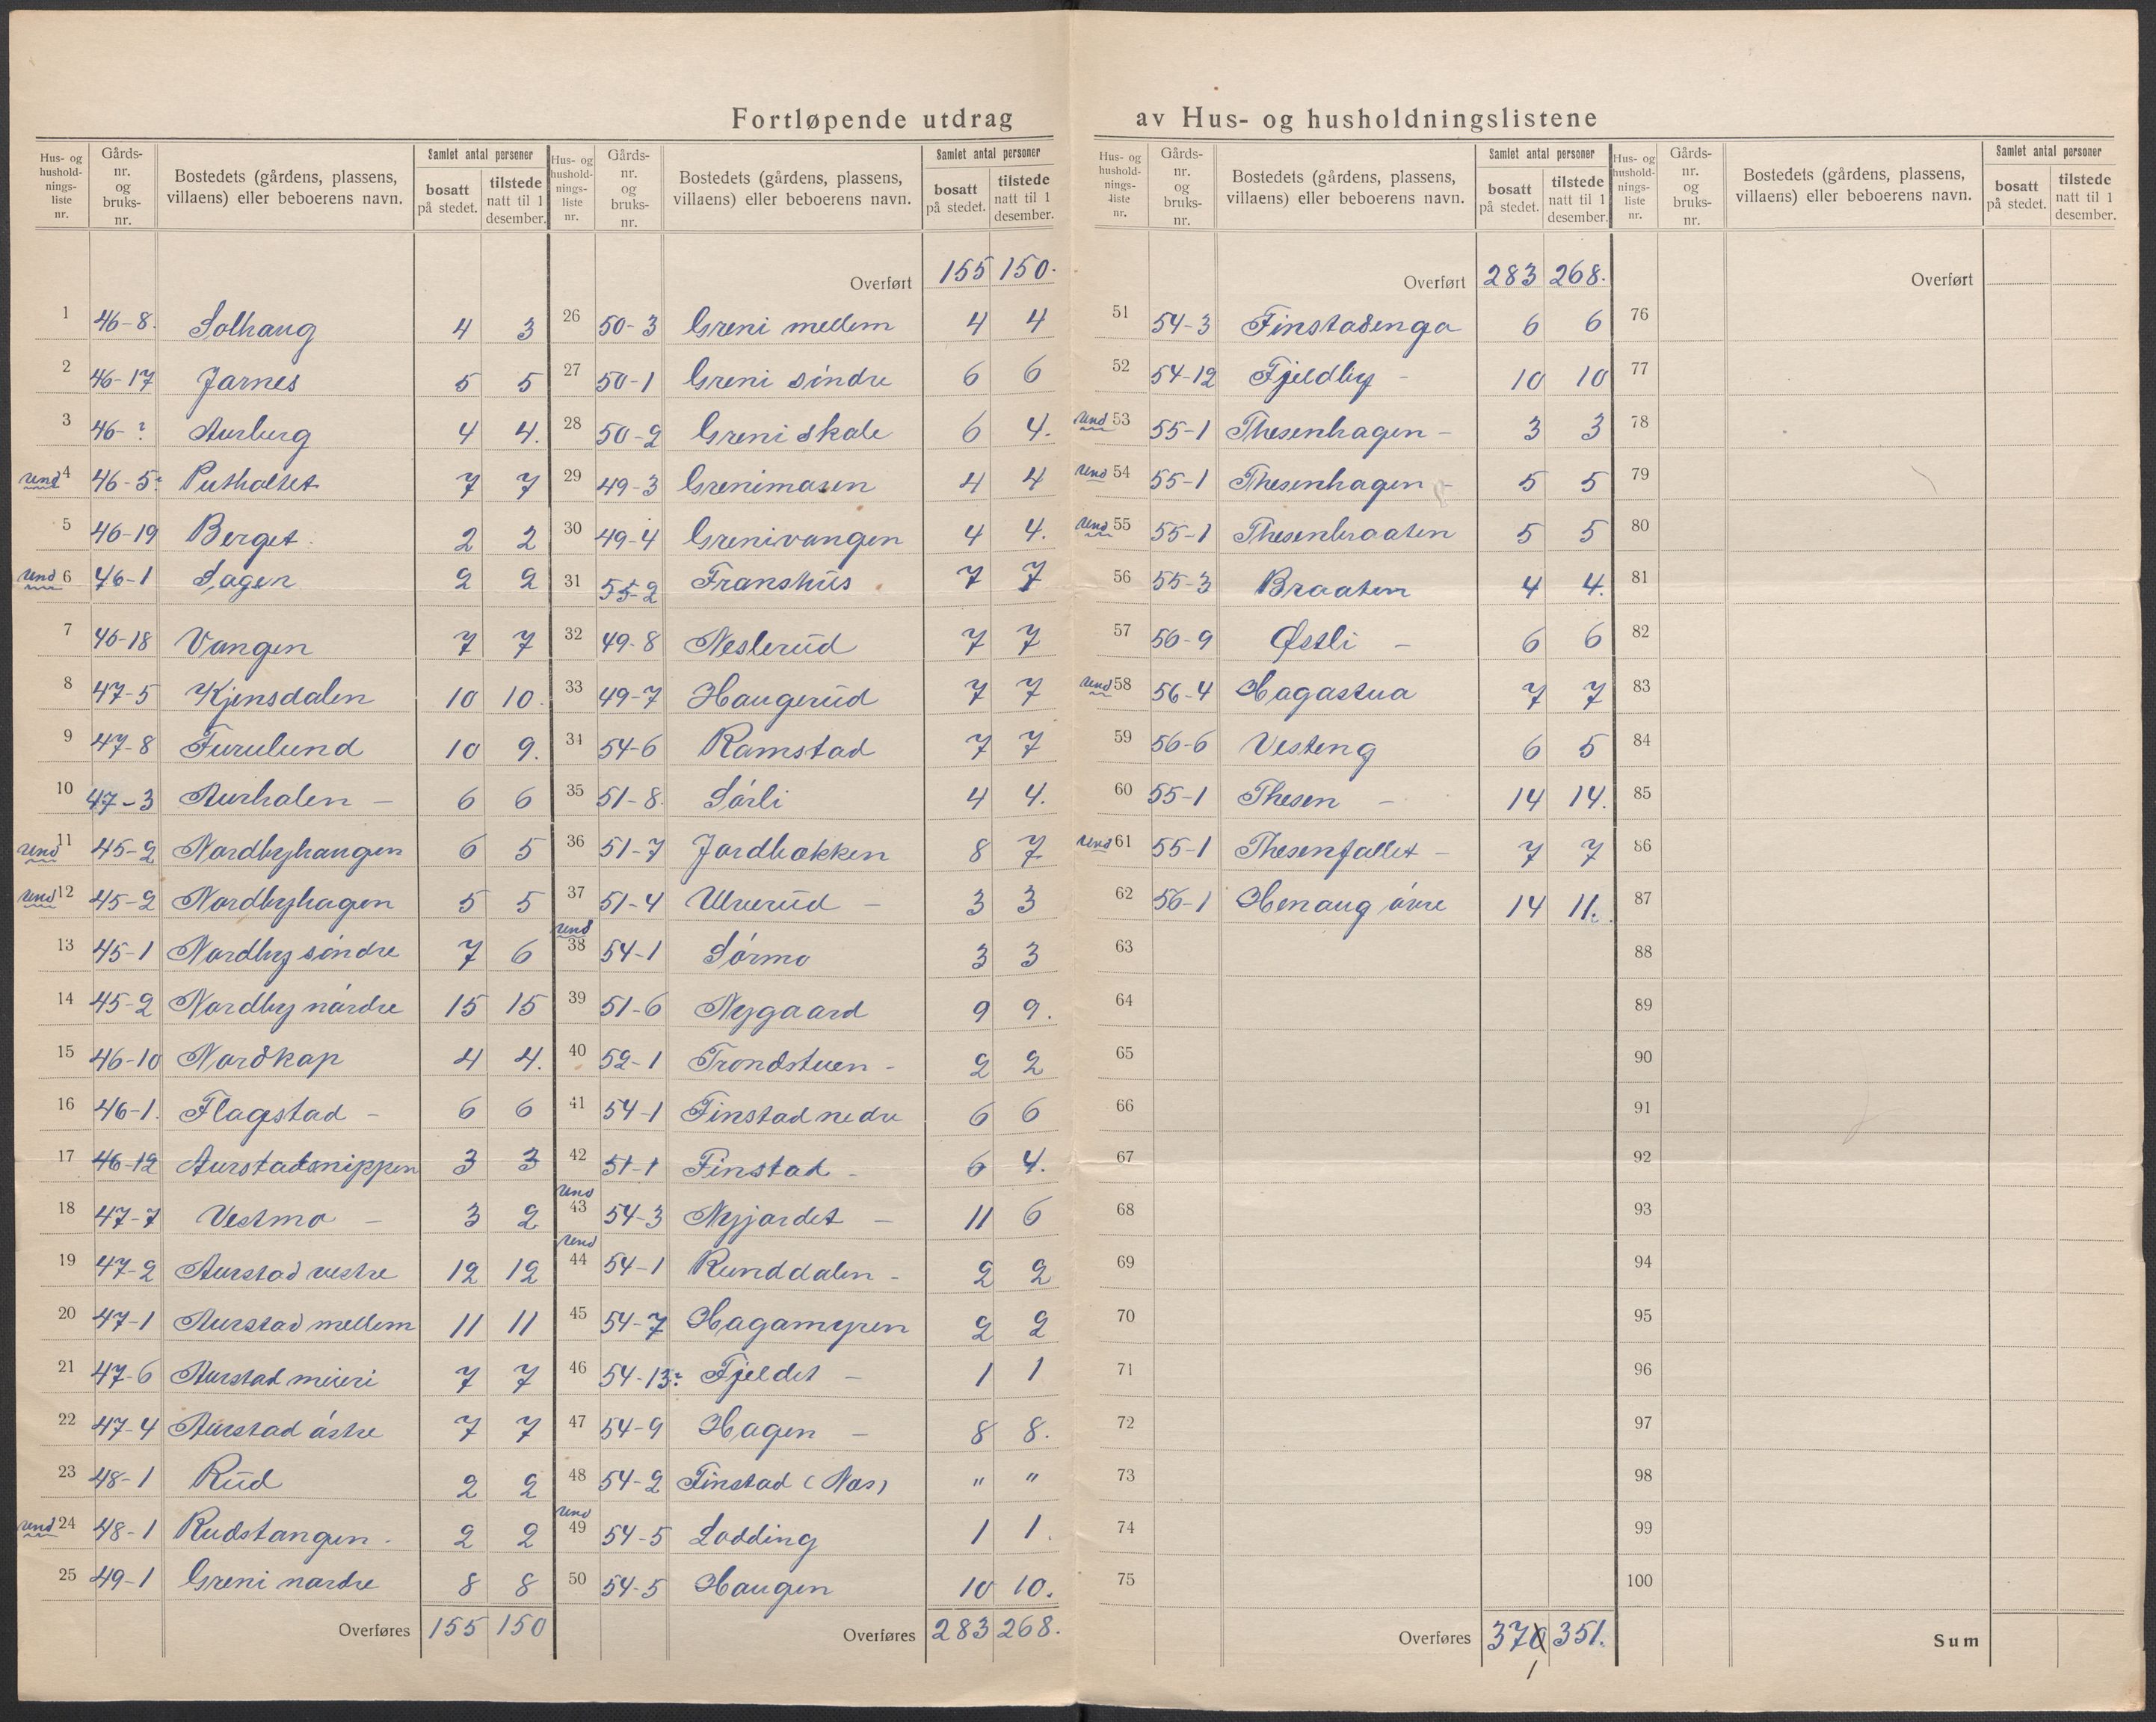 Fortløpende utdrag av Hus- og husholdningslistene
Hus- og husholdningsliste nr. | Gårds- nr. og bruks- nr. | Bostedets (gårdens, plassens, villaens) eller beboerens navn. | Samlet antal personer | bosatt på stedet. | tilstede natt til 1 desember.
1 46-8. Solhaug 4 3
2 46-17 Jarnes 5 5
3 46-? Aurberg 4 4.
und 4 46-5? Putholtet 7 7
5 46-19 Berget. 2 2
und 6 46-1 Sagen 2 2
7 46-18 Vangen 7 7
8 47-5 Kjensdalen 10 10.
9 47-8 Furulund 10 9.
10 47-3 Aurhalen - 6 6
und 11 45-2 Nordbyhaugen 6 5
und 12 45-2 Nordbyhagen 5 5
13 45-1 Nordby søndre 7 6
14 45-2 Nordby nørdre 15 15
15 46-10 Nordkap 4 4.
16 46-1. Flagstad - 6 6
17 46-12 Aurstadsnippen 3 3
18 47-7 Vestmo - 3 2
19 47-2 Aurstad vestre 12 12
20 47-1 Aurstad mellem 11 11
21 47-6 Aurstad meieri 7 7
22 47-4 Aurstad østre 7 7
23 48-1 Rud 2 2
und 24 48-1 Rudstangen. 2 2
25 49-1 Greni nordre 8 8
Overføres 155 150
Hus- og husholdningsliste nr. | Gårds- nr. og bruks- nr. | Bostedets (gårdens, plassens, villaens) eller beboerens navn. | Samlet antal personer | bosatt på stedet. | tilstede natt til 1 desember.
Overført 155 150.
26 50-3 Greni mellem 4 4
27 50-1 Greni søndre 6 6
28 50-2 Greni skole 6 4.
29 49-3 Grenimosen 4 4
30 49-4 Grenivangen 4 4.
31 55-2 Franshus 7 7
32 49-8 Neslerud 7 7
33 49-7 Haugerud 7 7
34 54-6 Ramstad 7 7
35 51-8. Sørli 4 4.
36 51-7 Jordbakken 8 7
37 51-4 Ulverud - 3 3
und 38 54-1 Sørmo 3 3
39 51-6 Nygaard 9 9.
40 52-1 Trondstuen - 2 2
41 54-1 Finstad nedre 6 6
42 51-1 Finstad - 6 4.
und 43 54-3 Nyjordet - 11 6
und 44 54-1 Runddalen - 2 2
45 54-7 Hagamyren 2 2
46 54-13? Fjeldet - 1 1
47 54-9 Hagen - 8 8.
48 54-2 Finstad (Nos) " "
und 49 54-5 Lodding 1 1.
50 54-5 Haugen 10 10.
Overføres 283 268.
Hus- og husholdningsliste nr. | Gårds- nr. og bruks- nr. | Bostedets (gårdens, plassens, villaens) eller beboerens navn. | Samlet antal personer | bosatt på stedet. | tilstede natt til 1 desember.
Overført 283 268.
51 54-3 Finstadenga 6 6
52 54-12 Fjeldby - 10 10
und 53 55-1 Thesenhagen - 3 3
und 54 55-1 Thesenhagen - 5 5
und 55 55-1 Thesenbraaten 5 5
56 55-3 Braaten 4 4.
57 56-9 Østli - 6 6
und 58 56-4 Hagastua 7 7
59 56-6 Vesteng 6 5
60 55-1 Thesen - 14 14.
und 61 55-1 Thesenfallet - 7 7
62 56-1 Henaug øvre 14 11.
63
64
65
66
67
68
69
70
71
72
73
74
75
Overføres 370 351.
1
Hus- og husholdningsliste nr. | Gårds- nr. og bruks- nr. | Bostedets (gårdens, plassens, villaens) eller beboerens navn. | Samlet antal personer | bosatt på stedet. | tilstede natt til 1 desember.
Overført
76
77
78
79
80
81
82
83
84
85
86
87
88
89
90
91
92
93
94
95
96
97
98
99
100
Sum